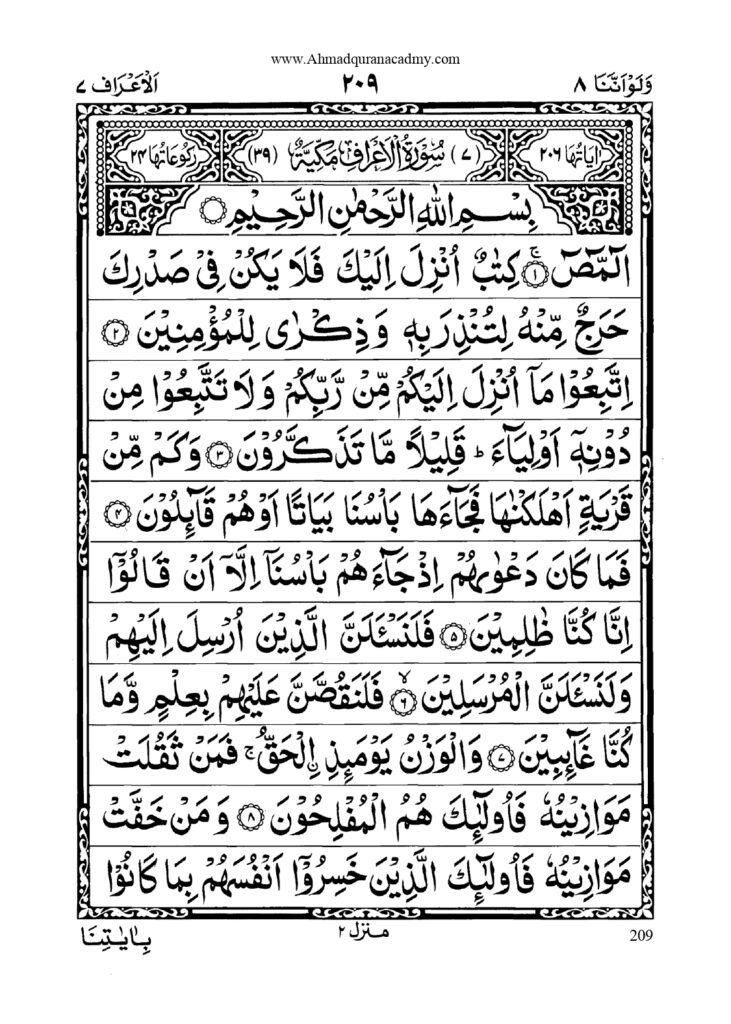 www.Ahmadquranacadmy.com
وَلَوْاَنَّنَا ٨ ٢٠٩ اَلْاَعْرَاف ٧
اٰيَاتُهَا ٢٠٦ (٧) سُوْرَةُ الْاَعْرَافِ مَكِّيَّةٌ (٣٩) رُكُوْعَاتُهَا ٢٤
بِسْمِ اللّٰهِ الرَّحْمٰنِ الرَّحِيْمِ
الٓمّٓصٓ ۚ﴿١﴾ كِتٰبٌ اُنْزِلَ اِلَيْكَ فَلَا يَكُنْ فِىْ صَدْرِكَ
حَرَجٌ مِّنْهُ لِتُنْذِرَ بِهٖ وَ ذِكْرٰى لِلْمُؤْمِنِيْنَ ﴿٢﴾
اِتَّبِعُوْا مَاۤ اُنْزِلَ اِلَيْكُمْ مِّنْ رَّبِّكُمْ وَ لَا تَتَّبِعُوْا مِنْ
دُوْنِهٖۤ اَوْلِيَآءَ ؕ قَلِيْلًا مَّا تَذَكَّرُوْنَ ﴿٣﴾ وَكَمْ مِّنْ
قَرْيَةٍ اَهْلَكْنٰهَا فَجَآءَهَا بَاْسُنَا بَيَاتًا اَوْ هُمْ قَآئِلُوْنَ ﴿٤﴾
فَمَا كَانَ دَعْوٰىهُمْ اِذْ جَآءَهُمْ بَاْسُنَاۤ اِلَّاۤ اَنْ قَالُوْۤا
اِنَّا كُنَّا ظٰلِمِيْنَ ﴿٥﴾ فَلَنَسْـَٔلَنَّ الَّذِيْنَ اُرْسِلَ اِلَيْهِمْ
وَلَنَسْـَٔلَنَّ الْمُرْسَلِيْنَ ۙ﴿٦﴾ فَلَنَقُصَّنَّ عَلَيْهِمْ بِعِلْمٍ وَّمَا
كُنَّا غَآئِبِيْنَ ﴿٧﴾ وَالْوَزْنُ يَوْمَئِذِ اۨلْحَقُّ ۚ فَمَنْ ثَقُلَتْ
مَوَازِيْنُهٗ فَاُولٰٓئِكَ هُمُ الْمُفْلِحُوْنَ ﴿٨﴾ وَ مَنْ خَفَّتْ
مَوَازِيْنُهٗ فَاُولٰٓئِكَ الَّذِيْنَ خَسِرُوْۤا اَنْفُسَهُمْ بِمَا كَانُوْا
بِاٰيٰتِنَا منزل ٢ 209